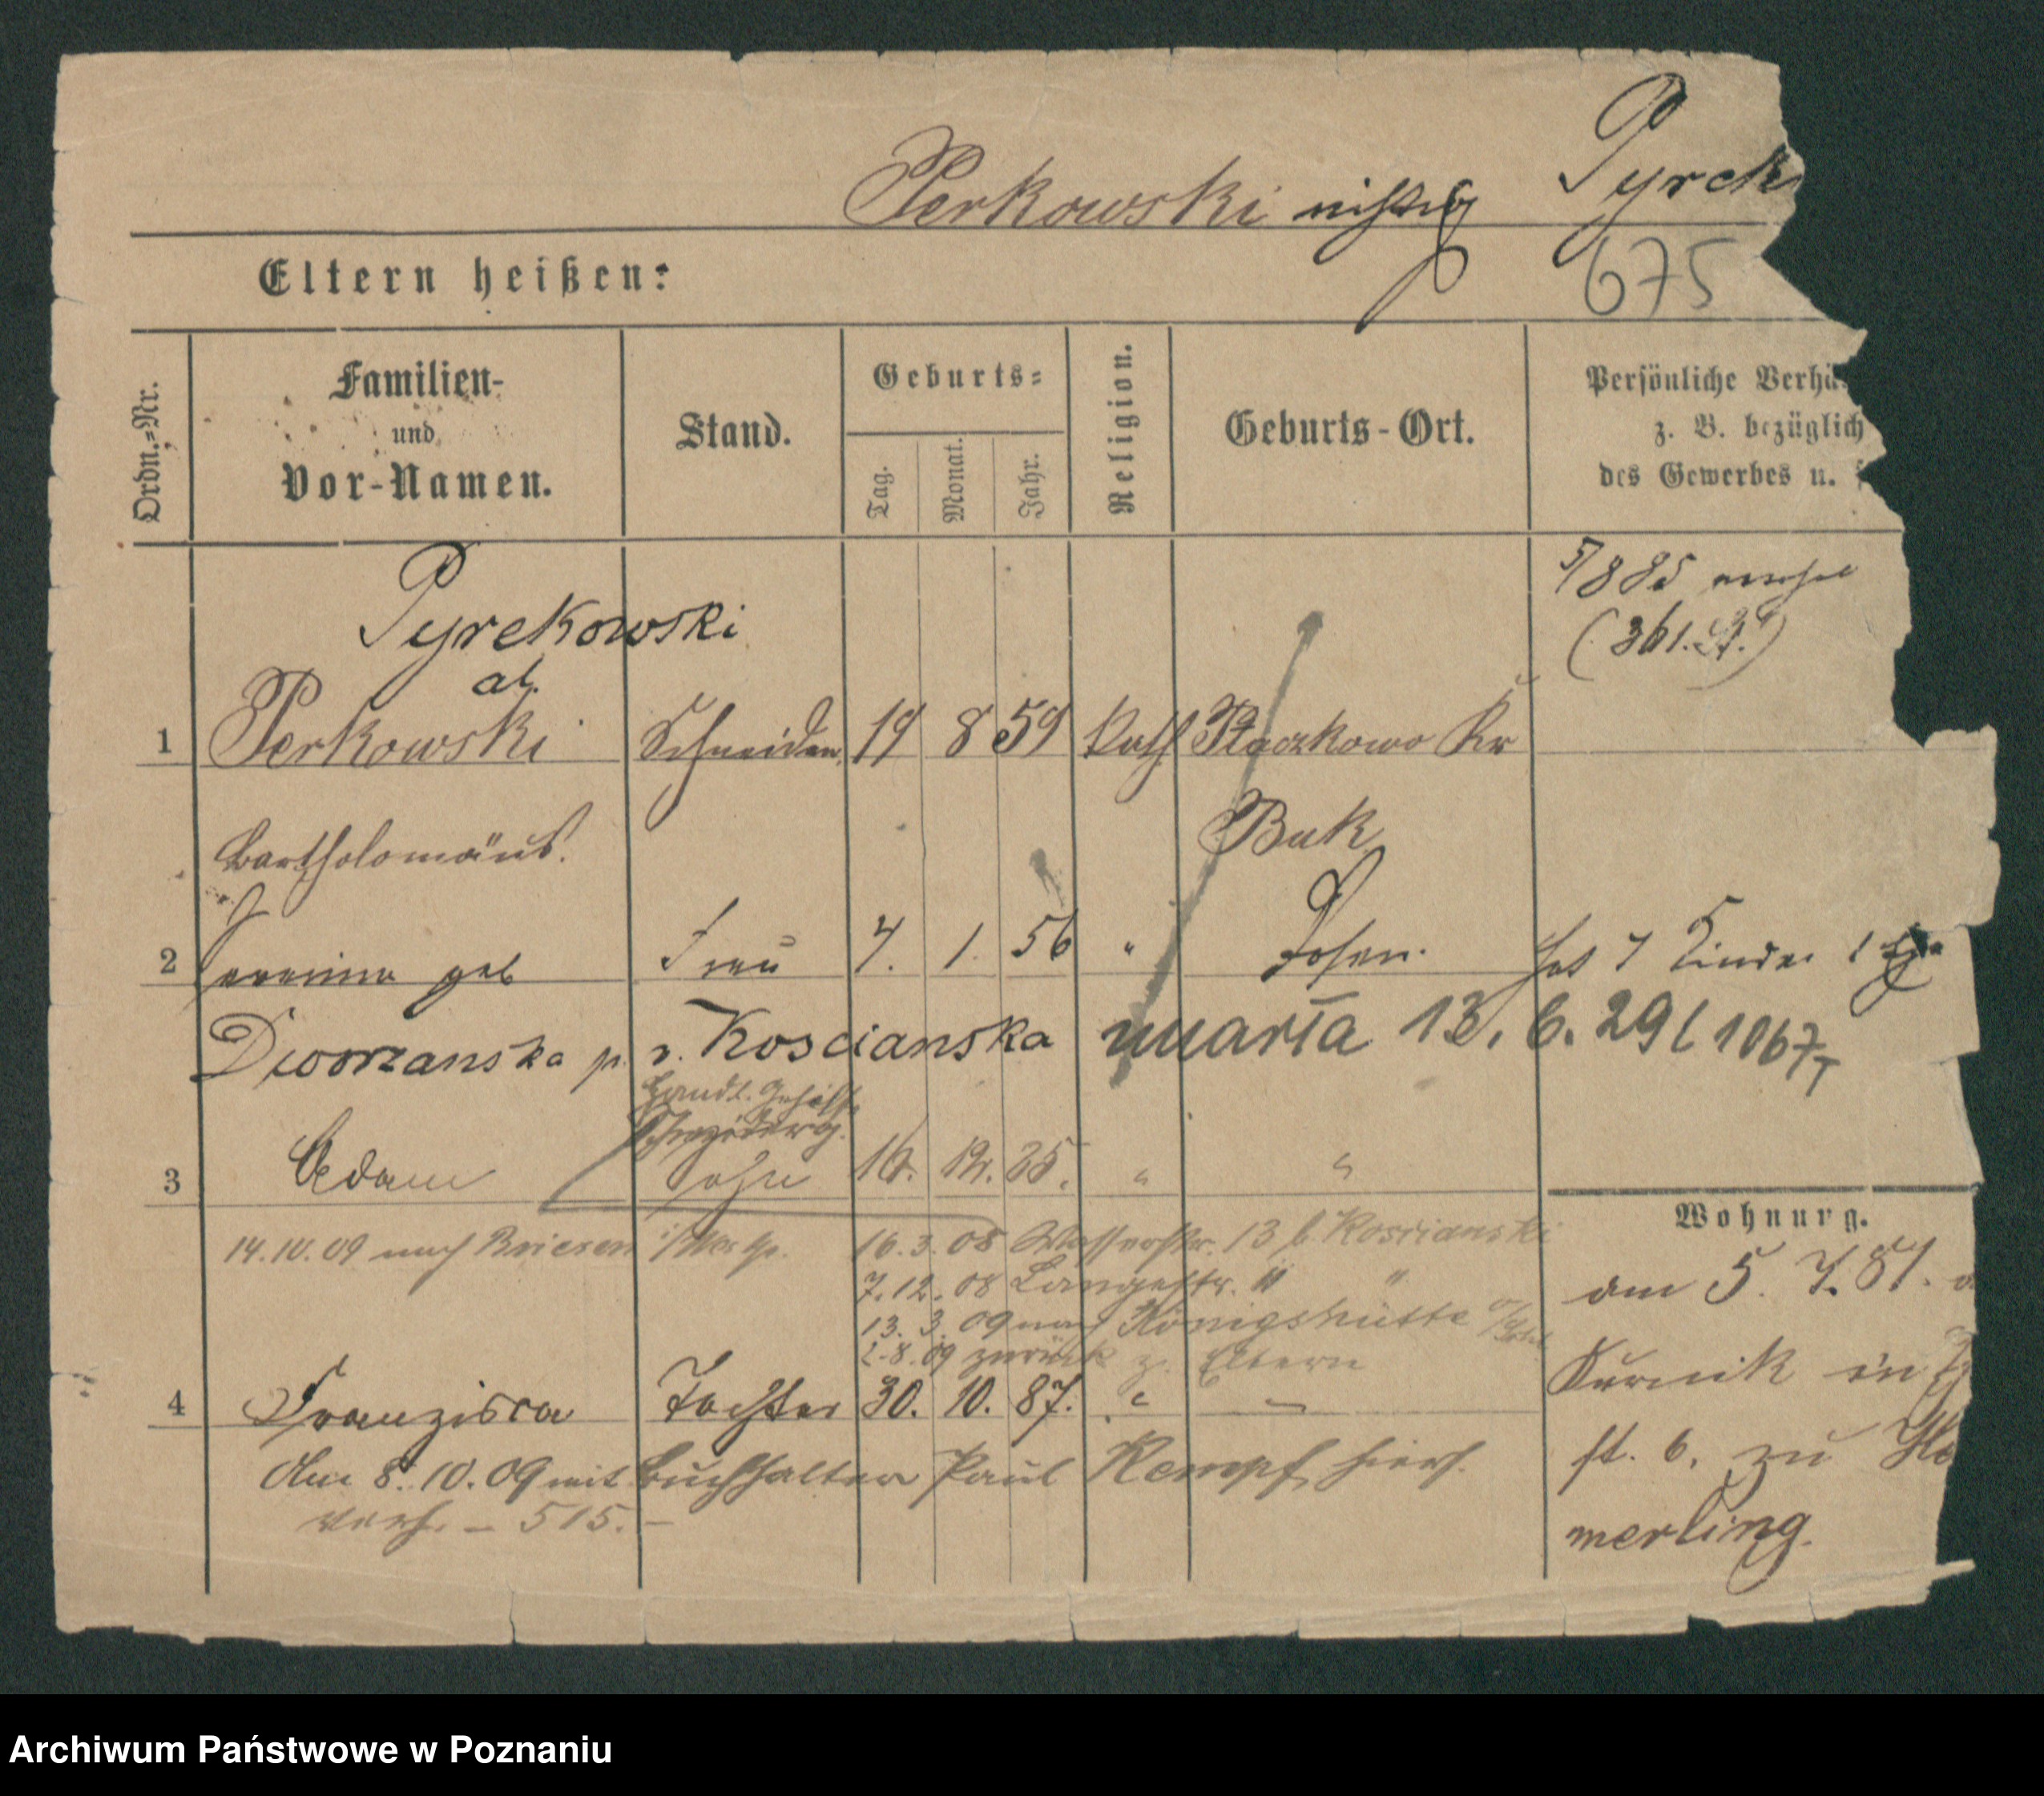 Perkowski richtig Pyrek
675
Eltern heißen:
Ordn.=Nr.
Familien-
und
Vor-Namen.
Stand.
Geburts=
Tag.
Monat.
Jahr.
Religion.
Geburts-Ort.
Persönliche Verhä
z. B. bezüglich
des Gewerbes u.
5/8 85
(361. )
Pyrekowski
al.
1 Perkowski Schneider 19 8 59 Kath Ptaszkowo Kr
Bartholomäus. Buk
2 geb Frau 4. 1. 56 " Posen. hat 7 Kinder 1
Dworzanska p. v. Koscianska umarła 13. 6. 29 ( 1067
Handl. Gehilfe
3 Adam Sohn 16. 12. 85. " "
Wohnung.
14.10.09 nach Briesen i/Wespr. 16. 3. 08 Wasserstr. 13 b. Koscianski
7. 12. 08 Langestr. 11 "
am 5. 7. 87.
13. 3. 09 nach Königshütte
8. 09 zurück z. Eltern
Kurnik in
4 Franzisca Tochter 30. 10. 87. " "
st. 6. zu
Am 8. 10. 09 mit Buchhalter Paul Kempf hiers.
verh. – 515. –
merling.
Archiwum Państwowe w Poznaniu